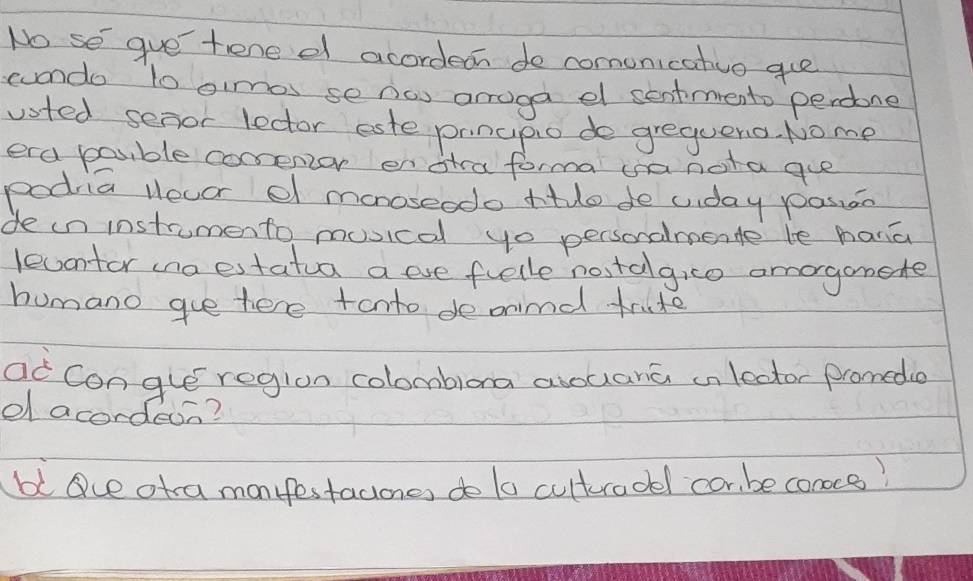 No sé qué tiene el acordeón de comunicativo que
cuando lo oimos se nos arruga el sentimiento perdone
usted señor lector este principio de greguería. No me
era posible comenzar en otra forma una nota que
podría llevar el manoseado título de vida y pasión
de un instrumento musical yo personalmente le haria
levantar una estatua a ese fuelle nostalgico amargamete
humano que tiene tanto de animal triste
a¿ Con qué region colombiana asociaría un lector promedio
el acordeón?
b¿ Que otra manifestaciones de la cultura del caribe conoce?